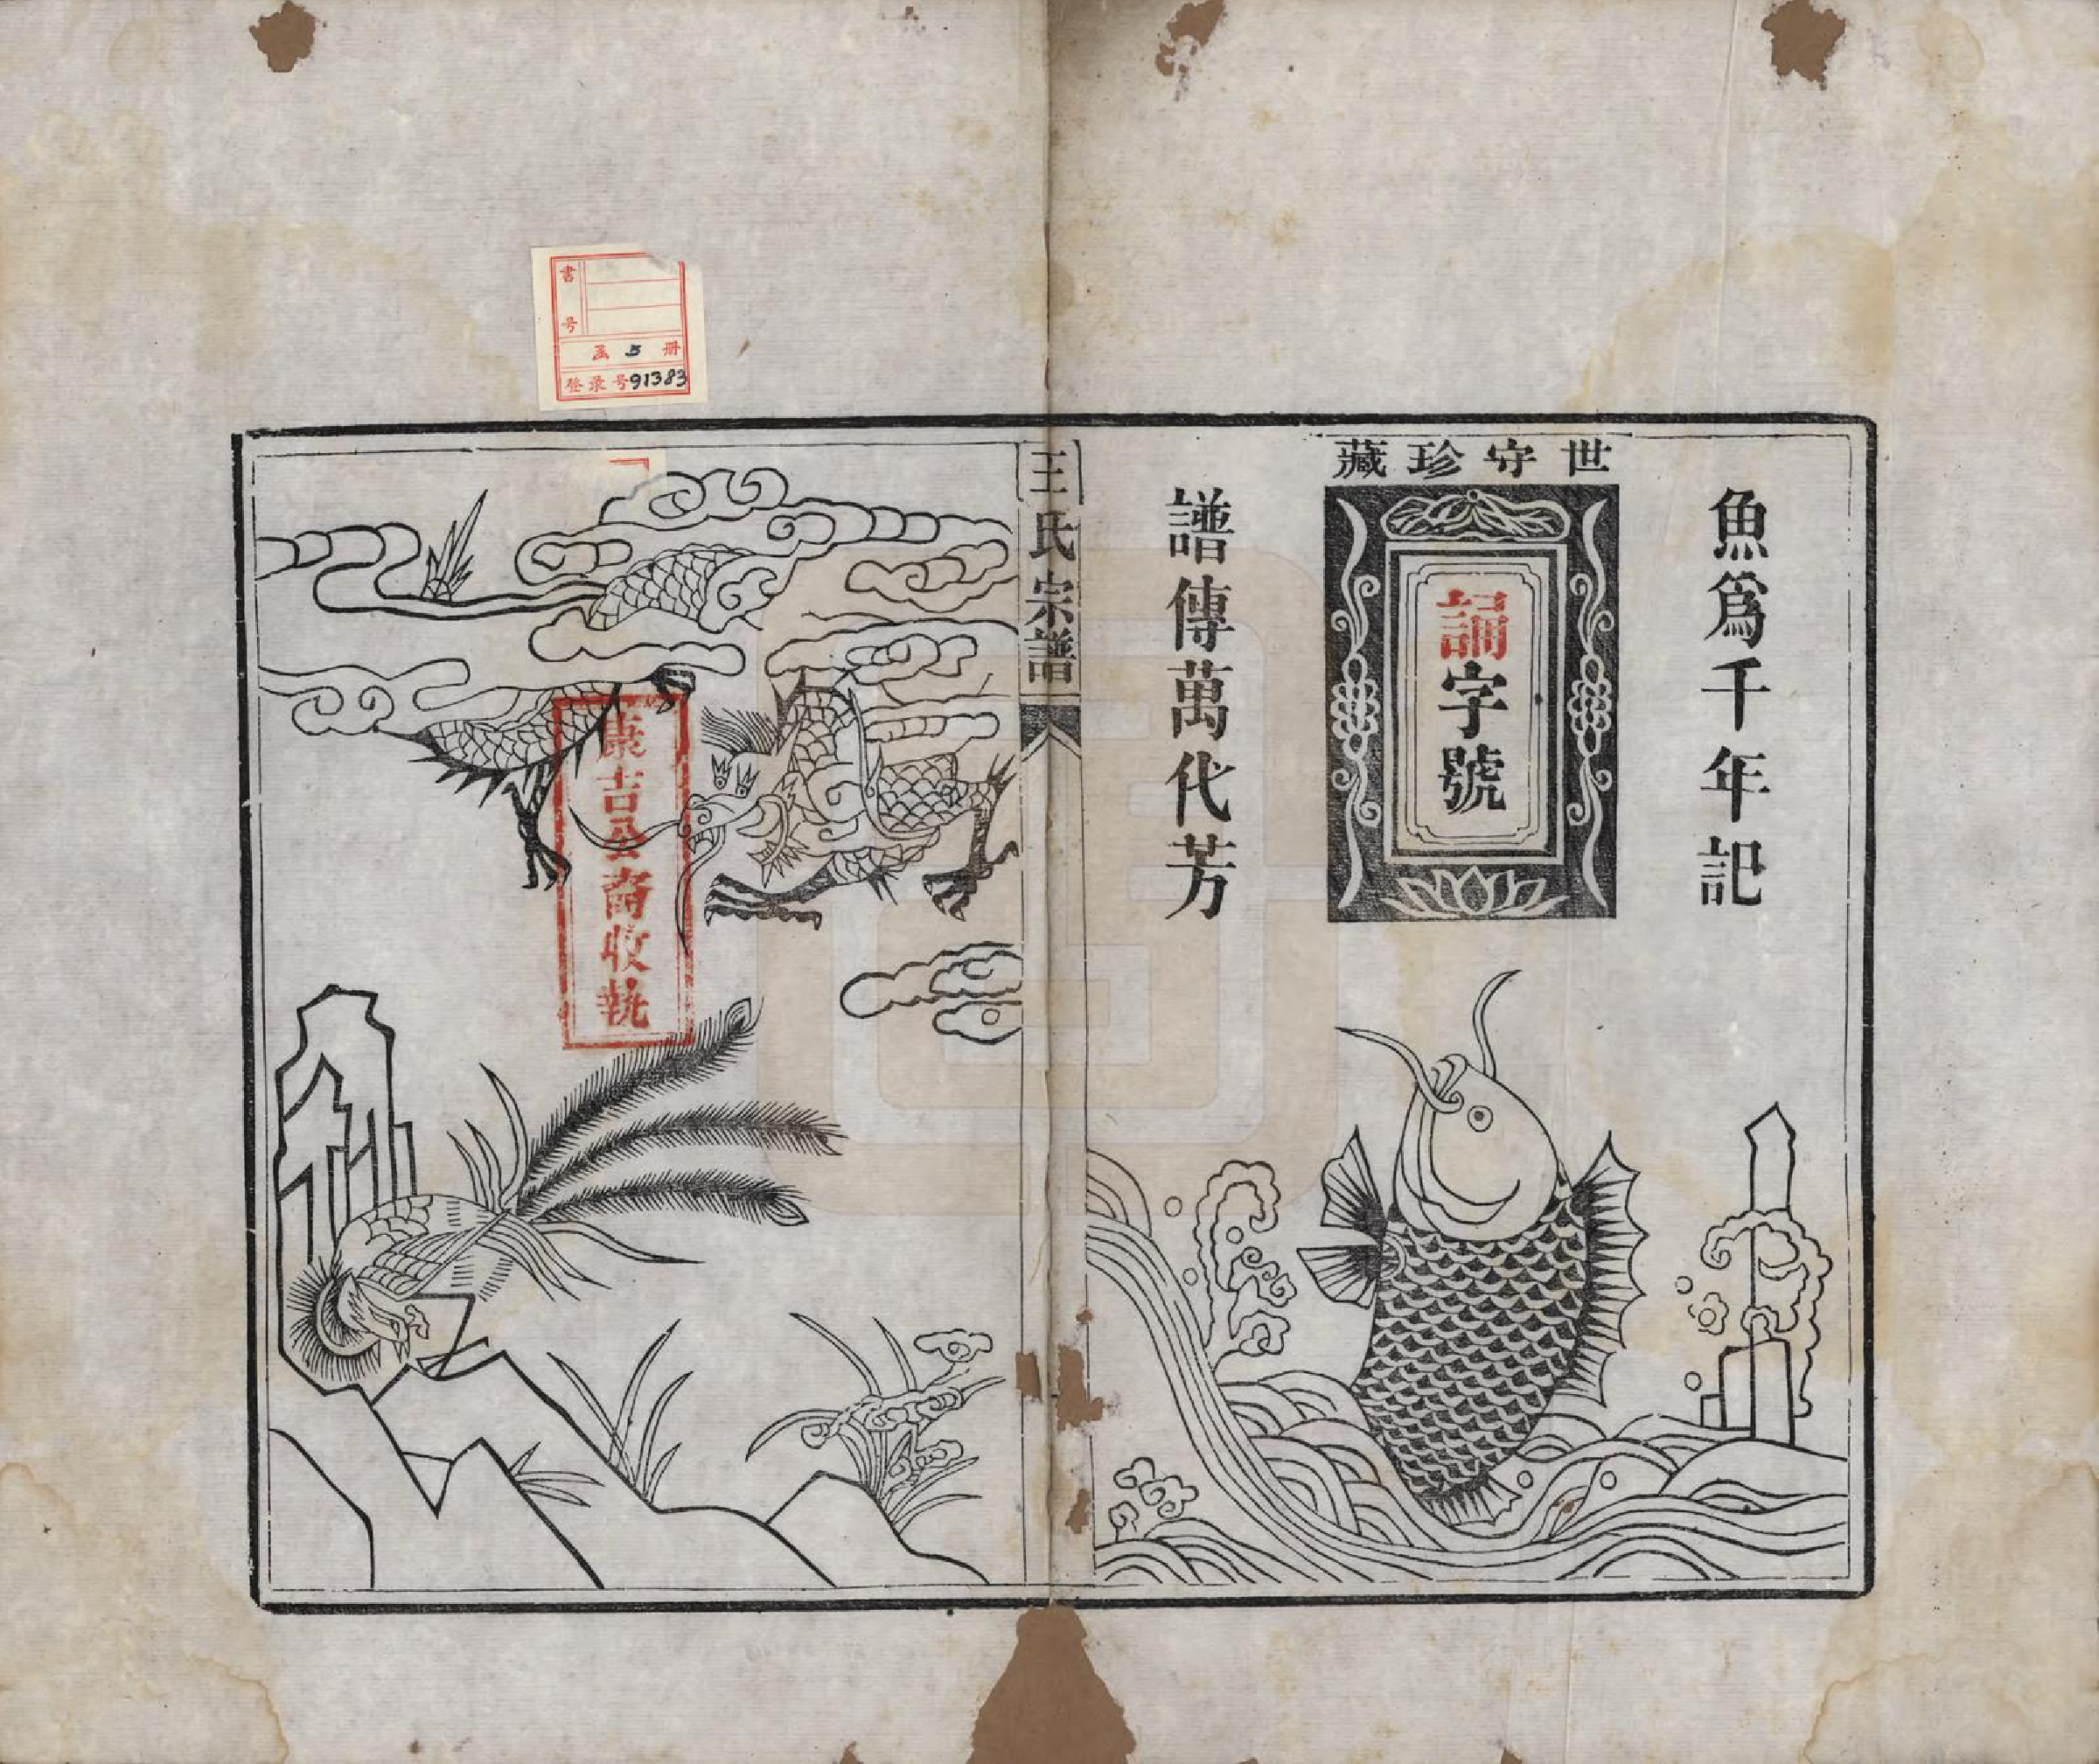 魚爲千年記
世守珍藏
誦字號
譜傳萬代芳
王氏宗譜
康吉公裔收執
書号
函 5 册
登录号91383